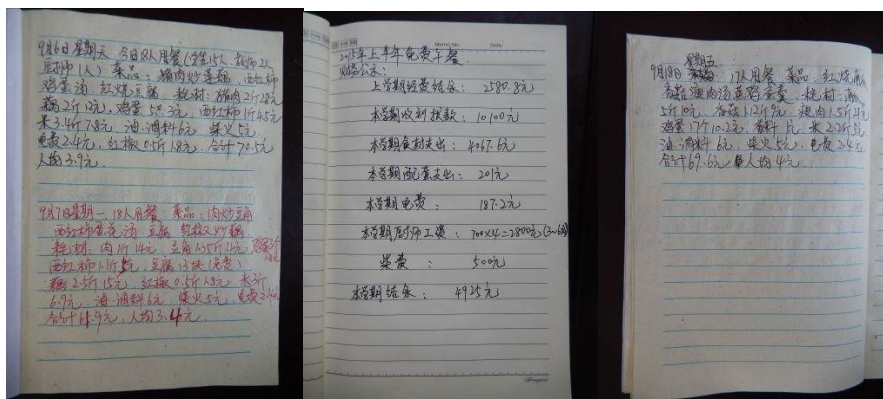 9月6日 星期天 今日18人用餐(学生15人 教师2人
厨师1人) 菜品: 猪肉炒莲藕 西红柿
鸡蛋汤 红烧豆腐. 耗材: 猪肉2斤28元
藕2斤12元, 鸡蛋 西红柿1斤4.5元
米3.4斤7.8元 油.调料6元 柴火5元
电费2.4元, 红椒0.5斤1.8元 合计70.5元
人均3.9元.
9月7日星期一. 18人用餐 菜品: 肉炒豆角
西红柿蛋花汤 豆腐 红椒炒藕
耗材: 肉1斤14元 豆角
西红柿1.1斤5元 豆腐13块(免费)
藕2.5斤15元 红椒0.5斤1.8元 米3斤
6.9元 油.调料6元 柴火5元 电费2.4元
合计 人均3.4元
2015年上半年免费午餐
财务公示:
上学期经费结余: 2580.8元
本学期收到拨款: 10100元
本学期食材支出: 4067.6元
本学期配套支出: 201元
本学期电费: 187.2元
本学期厨师工资: 700×4=2800元(3-6月)
柴费: 500元
本学期结余: 4925元
星期五
9月18日 17人用餐 菜品 红烧
香菇 瘦肉汤 蒸鸡蛋羹 耗材:
5斤10元 香菇1.2斤9元 瘦肉1.5斤21元
鸡蛋17个10.2元 香料1元 米2.2斤5元
油.调料6元 柴火5元 电费2.4元
合计69.6元 人均4元